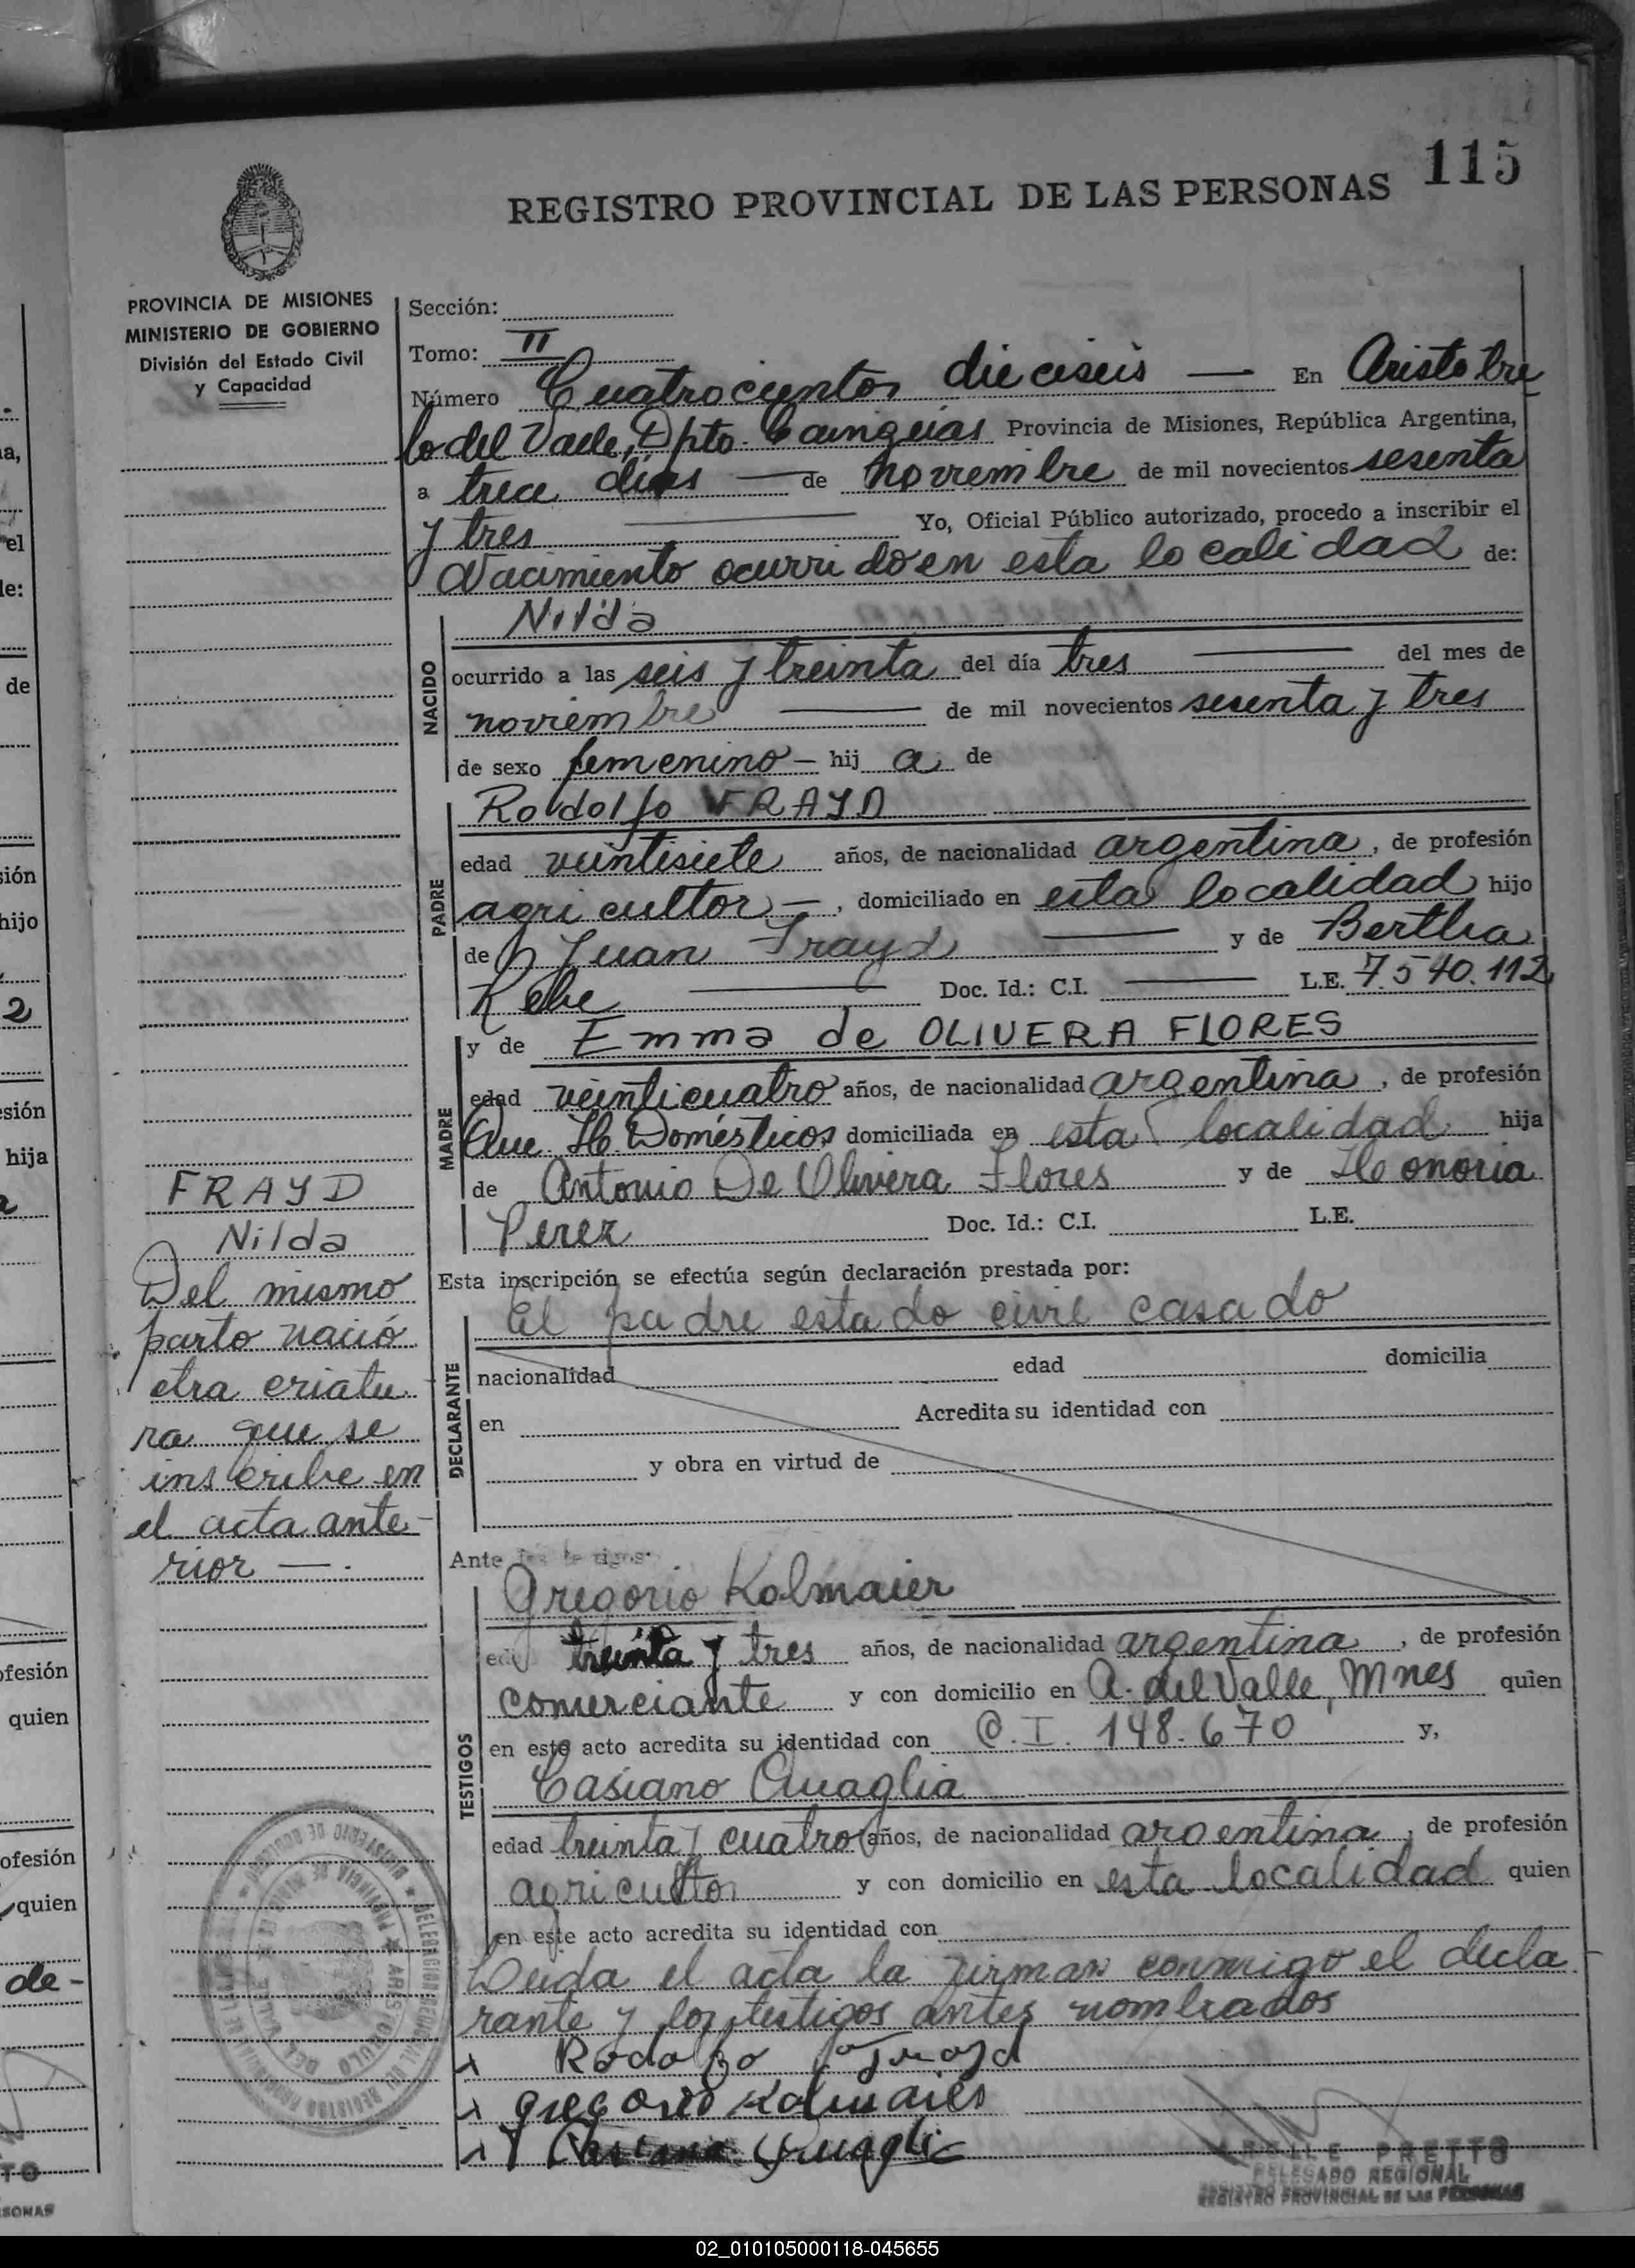 115
REGISTRO PROVINCIAL DE LAS PERSONAS
PROVINCIA DE MISIONES
MINISTERIO DE GOBIERNO
División del Estado Civil
y Capacidad
Sección:
Tomo: II
Número Cuatrocientos dieciseis — En Aristobu
lo del Valle, Dpto. Cainguas Provincia de Misiones, República Argentina,
a trece dias — de noviembre de mil novecientos sesenta
y tres — Yo, Oficial Público autorizado, procedo a inscribir el
Nacimiento ocurrido en esta localidad de:
NACIDO
Nilda
ocurrido a las seis y treinta del día tres — del mes de
noviembre — de mil novecientos sesenta y tres
de sexo femenino — hij a de
PADRE
Rodolfo FRAYD
edad veintisiete años, de nacionalidad argentina, de profesión
agricultor —, domiciliado en esta localidad hijo
de Juan Frayd — y de Bertha
Kebe — Doc. Id.: C.I. — L.E. 7.540.112
MADRE
y de Emma de OLIVERA FLORES
edad veinticuatro años, de nacionalidad argentina, de profesión
Que. H. Domésticos domiciliada en esta localidad hija
de Antonio De Olivera Flores y de Honoria
Perez Doc. Id.: C.I. L.E.
FRAYD
Nilda
Del mismo
parto nació
otra criatu
ra que se
inscribe en
el acta ante-
rior —.
Esta inscripción se efectúa según declaración prestada por:
DECLARANTE
El padre estado civil casado
nacionalidad edad domicilia
en Acredita su identidad con
y obra en virtud de
Ante los testigos:
TESTIGOS
Gregorio Kolmaier
edad treinta y tres años, de nacionalidad argentina, de profesión
comerciante y con domicilio en A. del Valle, Mnes quien
en este acto acredita su identidad con C.I. 148.670 y,
Casiano Quaglia
edad treinta y cuatro años, de nacionalidad argentina, de profesión
agricultor y con domicilio en esta localidad quien
en este acto acredita su identidad con
Leida el acta la firman conmigo el decla
rante y los testigos antes nombrados
Rodolfo Frayd
gregorio Kolmaier
Quaglia
PRETTO
DELEGADO REGIONAL
REGISTRO PROVINCIAL DE LAS PERSONAS
02_010105000118-045655